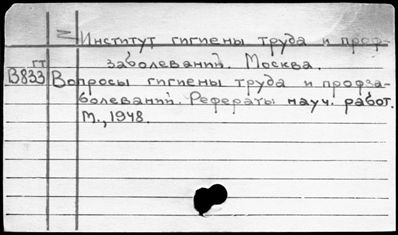 Институт гигиены труда и проф-
заболеваний. Москва.
гт
В833 Вопросы гигиены труда и профза-
болеваний. Рефераты науч. работ.
М., 1948.